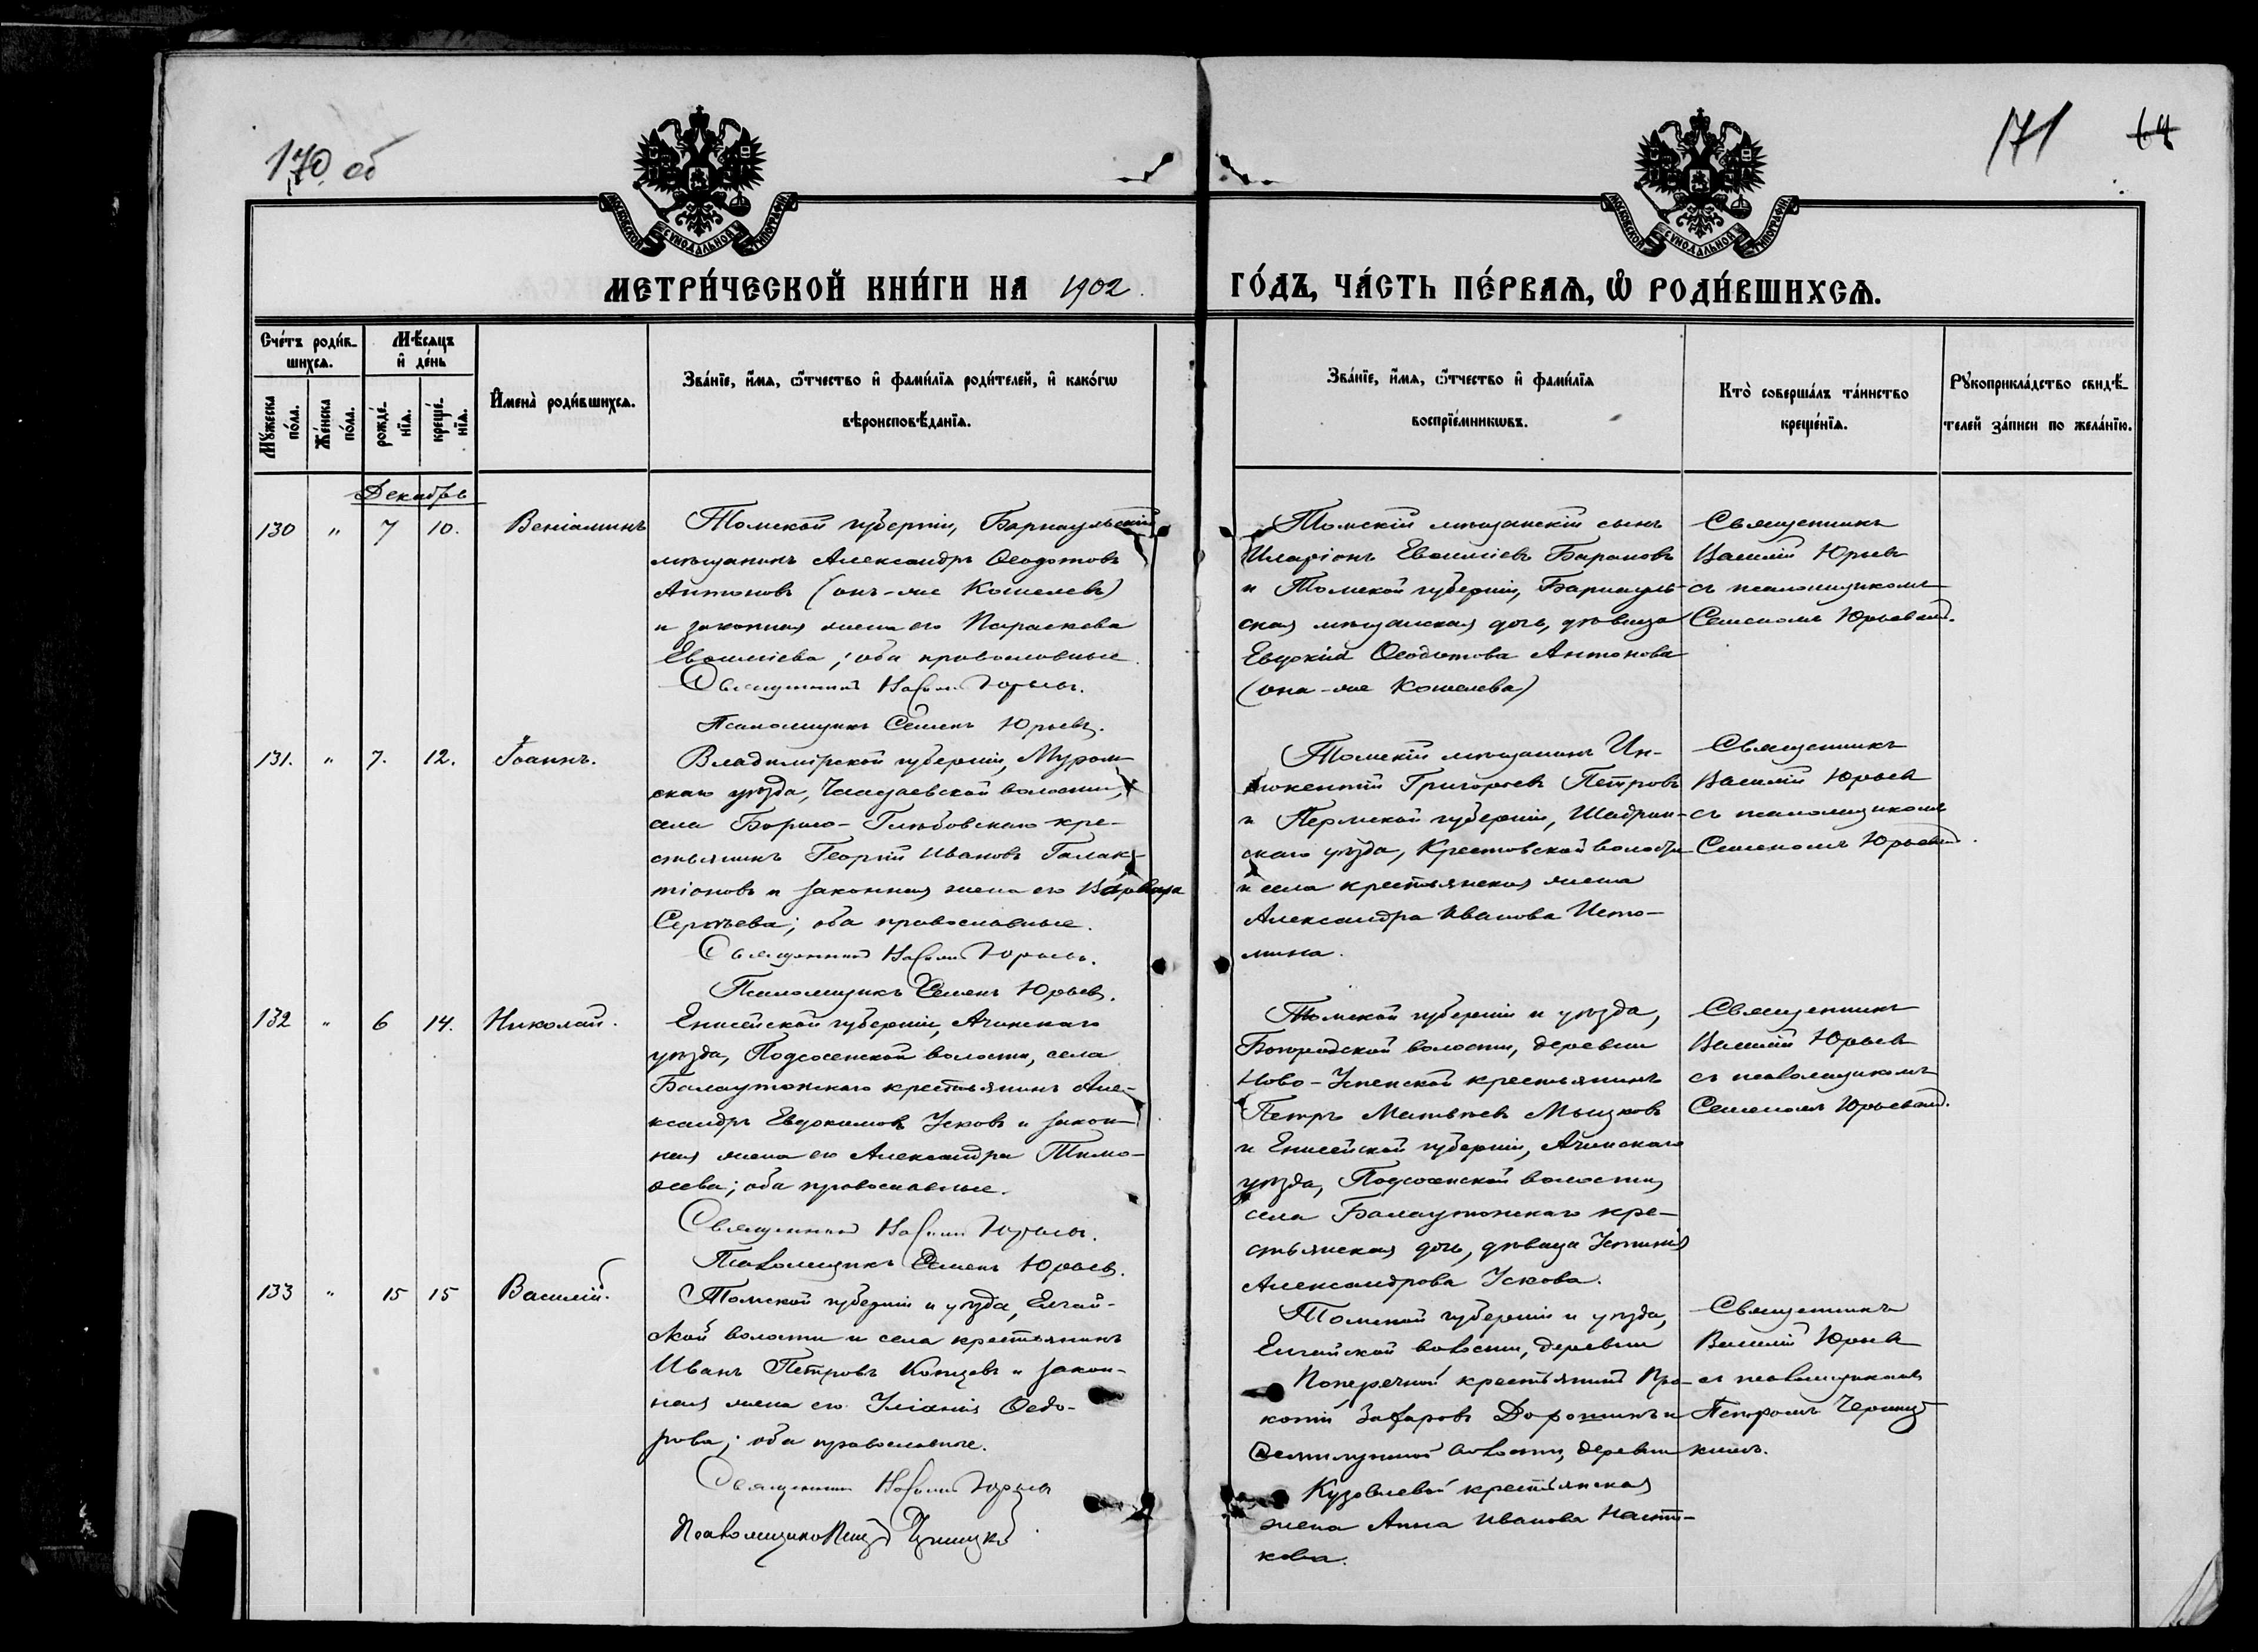 170 об
171
64
МОСКОВСКОЙ СУНОДАЛЬНОЙ ТИПОГРАФІИ
МОСКОВСКОЙ СУНОДАЛЬНОЙ ТИПОГРАФІИ
МЕТРИ́ЧЕСКОЙ КНИ́ГИ НА 1902 ГО́ДЪ, ЧА́СТЬ ПЕ́РВАѦ, Ѽ РОДИ́ВШИХСѦ.
Сче́тъ роди́в-
шихсѧ.
Мꙋ́жеска
по́ла.
Же́нска
по́ла.
Мѣ́сѧцъ
и҆ де́нь
рожде́-
нїѧ.
креще́-
нїѧ.
И҆мена̀ роди́вшихсѧ.
Зва́нїе, и҆́мѧ, ѻ҆́тчество и҆ фами́лїѧ роди́телей, и҆ како́гѡ
вѣроисповѣ́данїѧ.
Зва́нїе, и҆́мѧ, ѻ҆́тчество и҆ фами́лїѧ
воспрїе́мникѡвъ.
Кто̀ соверша́лъ та́инство
креще́нїѧ.
Рꙋкоприкла́дство свидѣ́-
телей за́писи по жела́нїю.
Декабрь
130 " 7 10. Веніаминъ
Томской губерніи, Барнаульскій
мѣщанинъ Александръ Ѳеодотовъ
Антоновъ (онъ-же Кошелевъ)
и законная жена его Параскева
Евѳиміева; оба православные.
Священникъ Василій Юрьевъ.
Псаломщикъ Семенъ Юрьевъ.
Томскій мѣщанскій сынъ
Иларіонъ Евѳиміевъ Барановъ
и Томской губерніи, Барнауль-
ская мѣщанская дочь, дѣвица
Евдокія Ѳеодотова Антонова
(она-же Кошелева)
Священникъ
Василій Юрьевъ
съ псаломщикомъ
Семеномъ Юрьевымъ.
131. " 7. 12. Іоаннъ.
Владимірской губерніи, Муром-
скаго уѣзда, волости,
села Борисо-Глѣбовскаго кре-
стьянинъ Георгій Ивановъ Галак-
тіоновъ и законная жена его Варвара
Сергѣева; оба православные.
Священникъ Василій Юрьевъ.
Псаломщикъ Семенъ Юрьевъ.
Томскій мѣщанинъ Ин-
нокентій Григорьевъ Петровъ
и Пермской губерніи, Шадрин-
скаго уѣзда, Крестовской волости
и села крестьянская жена
Александра Иванова Исто-
мина.
Священникъ
Василій Юрьевъ
съ псаломщикомъ
Семеномъ Юрьевымъ.
132 " 6 14. Николай.
Енисейской губерніи, Ачинскаго
уѣзда, Подсосенской волости, села
крестьянинъ Але-
ксандръ Евдокимовъ Усковъ и закон-
ная жена его Александра Тимо-
ѳеева; оба православные.
Священникъ Василій Юрьевъ.
Псаломщикъ Семенъ Юрьевъ.
Томской губерніи и уѣзда,
Богородской волости, деревни
Ново-Успенской крестьянинъ
Петръ Матвѣевъ
и Енисейской губерніи, Ачинскаго
уѣзда, Подсосенской волости,
села кре-
стьянская дочь, дѣвица Устинія
Александрова Ускова.
Священникъ
Василій Юрьевъ
съ псаломщикомъ
Семеномъ Юрьевымъ.
133 " 15 15 Василій.
Томской губерніи и уѣзда, Елгай-
ской волости и села крестьянинъ
Иванъ Петровъ и закон-
ная жена его Уліанія Ѳедо-
рова; оба православные.
Священникъ Василій Юрьевъ
Псаломщикъ Петръ
Томской губерніи и уѣзда,
Елгайской волости, деревни
Поперечной крестьянинъ Про-
копій Захаровъ Дорохинъ и
волости, деревни
Кузовлевой крестьянская
жена Анна Иванова
кова.
Священникъ
Василій Юрьевъ
съ псаломщикомъ
Петромъ
кимъ.